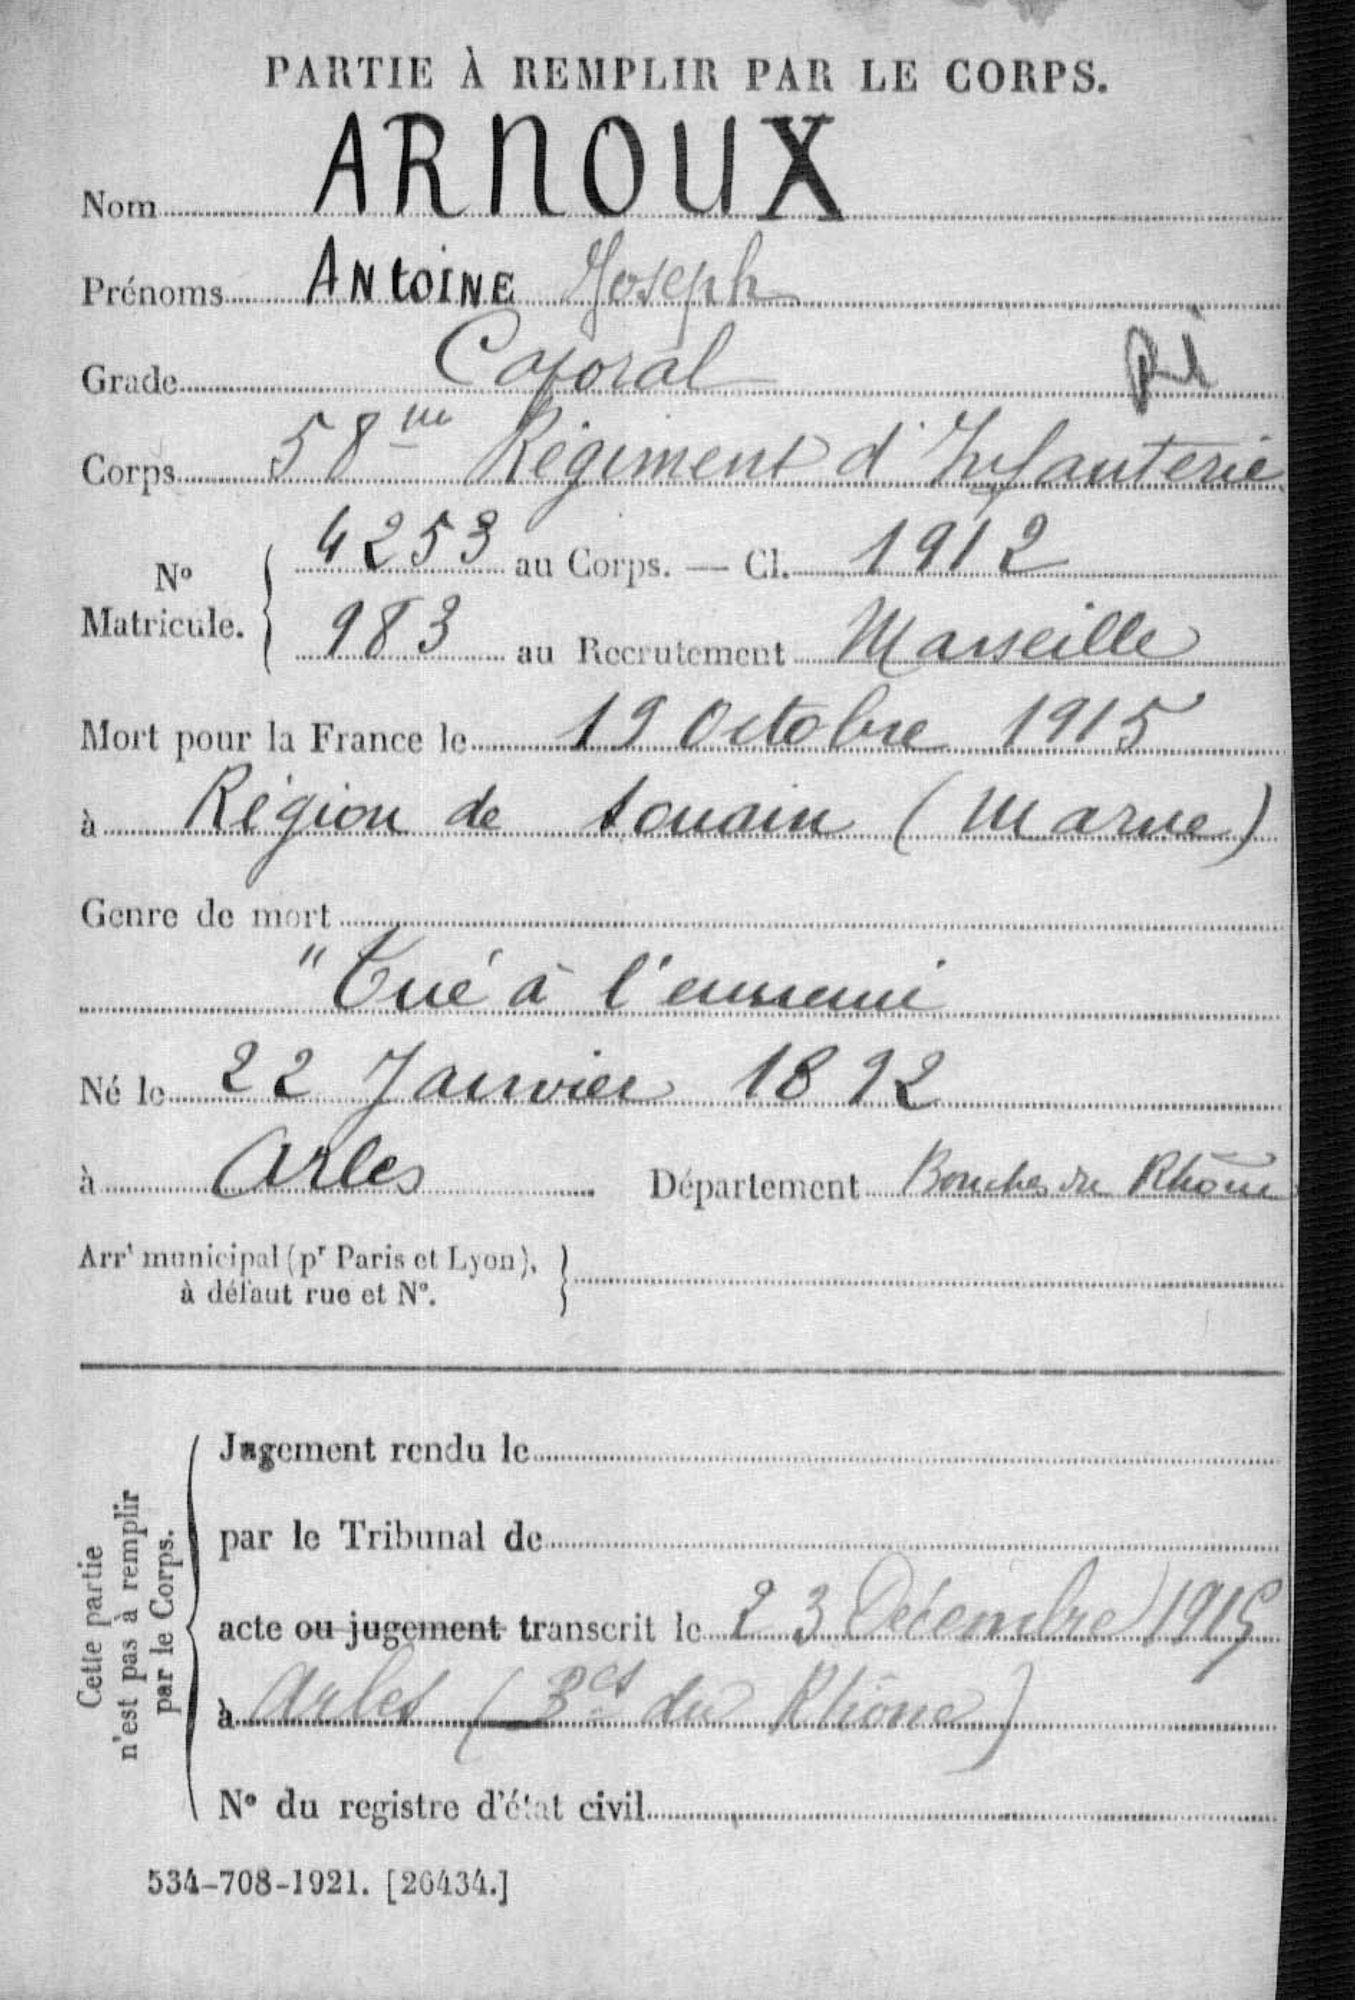 PARTIE À REMPLIR PAR LE CORPS.
Nom ARNOUX
Prénoms ANtoiNE Joseph
Grade Caporal
Corps 58me Régiment d'Infanterie
4253 au Corps. — Cl. 1912
No Matricule.
983 au Recrutement Marseille
Mort pour la France le 19 Octobre 1915
à Région de Souain (Marne)
Genre de mort
"Tué à l'ennemi
Né le 22 Janvier 1892
à Arles Département Bouches du Rhône
Arrt municipal (pr Paris et Lyon),
à défaut rue et No.
Cette partie
n'est pas à remplir
par le Corps.
Jugement rendu le
par le Tribunal de
acte ou jugement transcrit le 23 Décembre 1915
à Arles (Bces du Rhône)
No du registre d'état civil
534-708-1921. [26434.]